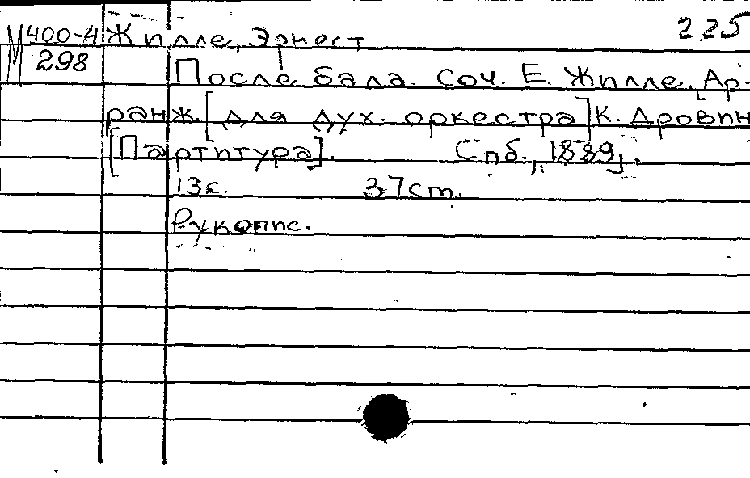 М400-4 Жилле, Эрнест 225
298 После бала. Соч. Е. Жилле. Ар-
ранж. [для дух. оркестра] К. Дровин
[Партитура]. Спб., 1889,.
13с. 37 ст.
Рукопис.